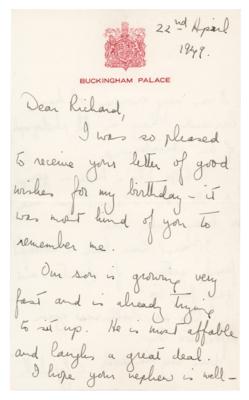 22nd April
1949.
BUCKINGHAM PALACE
Dear Richard,
I was so pleased
to receive your letter of good
wishes for my birthday – it
was most kind of you to
remember me.
Our son is growing very
fast and is already trying
to sit up. He is most affable
and laughs a great deal.
I hope your nephew is well –